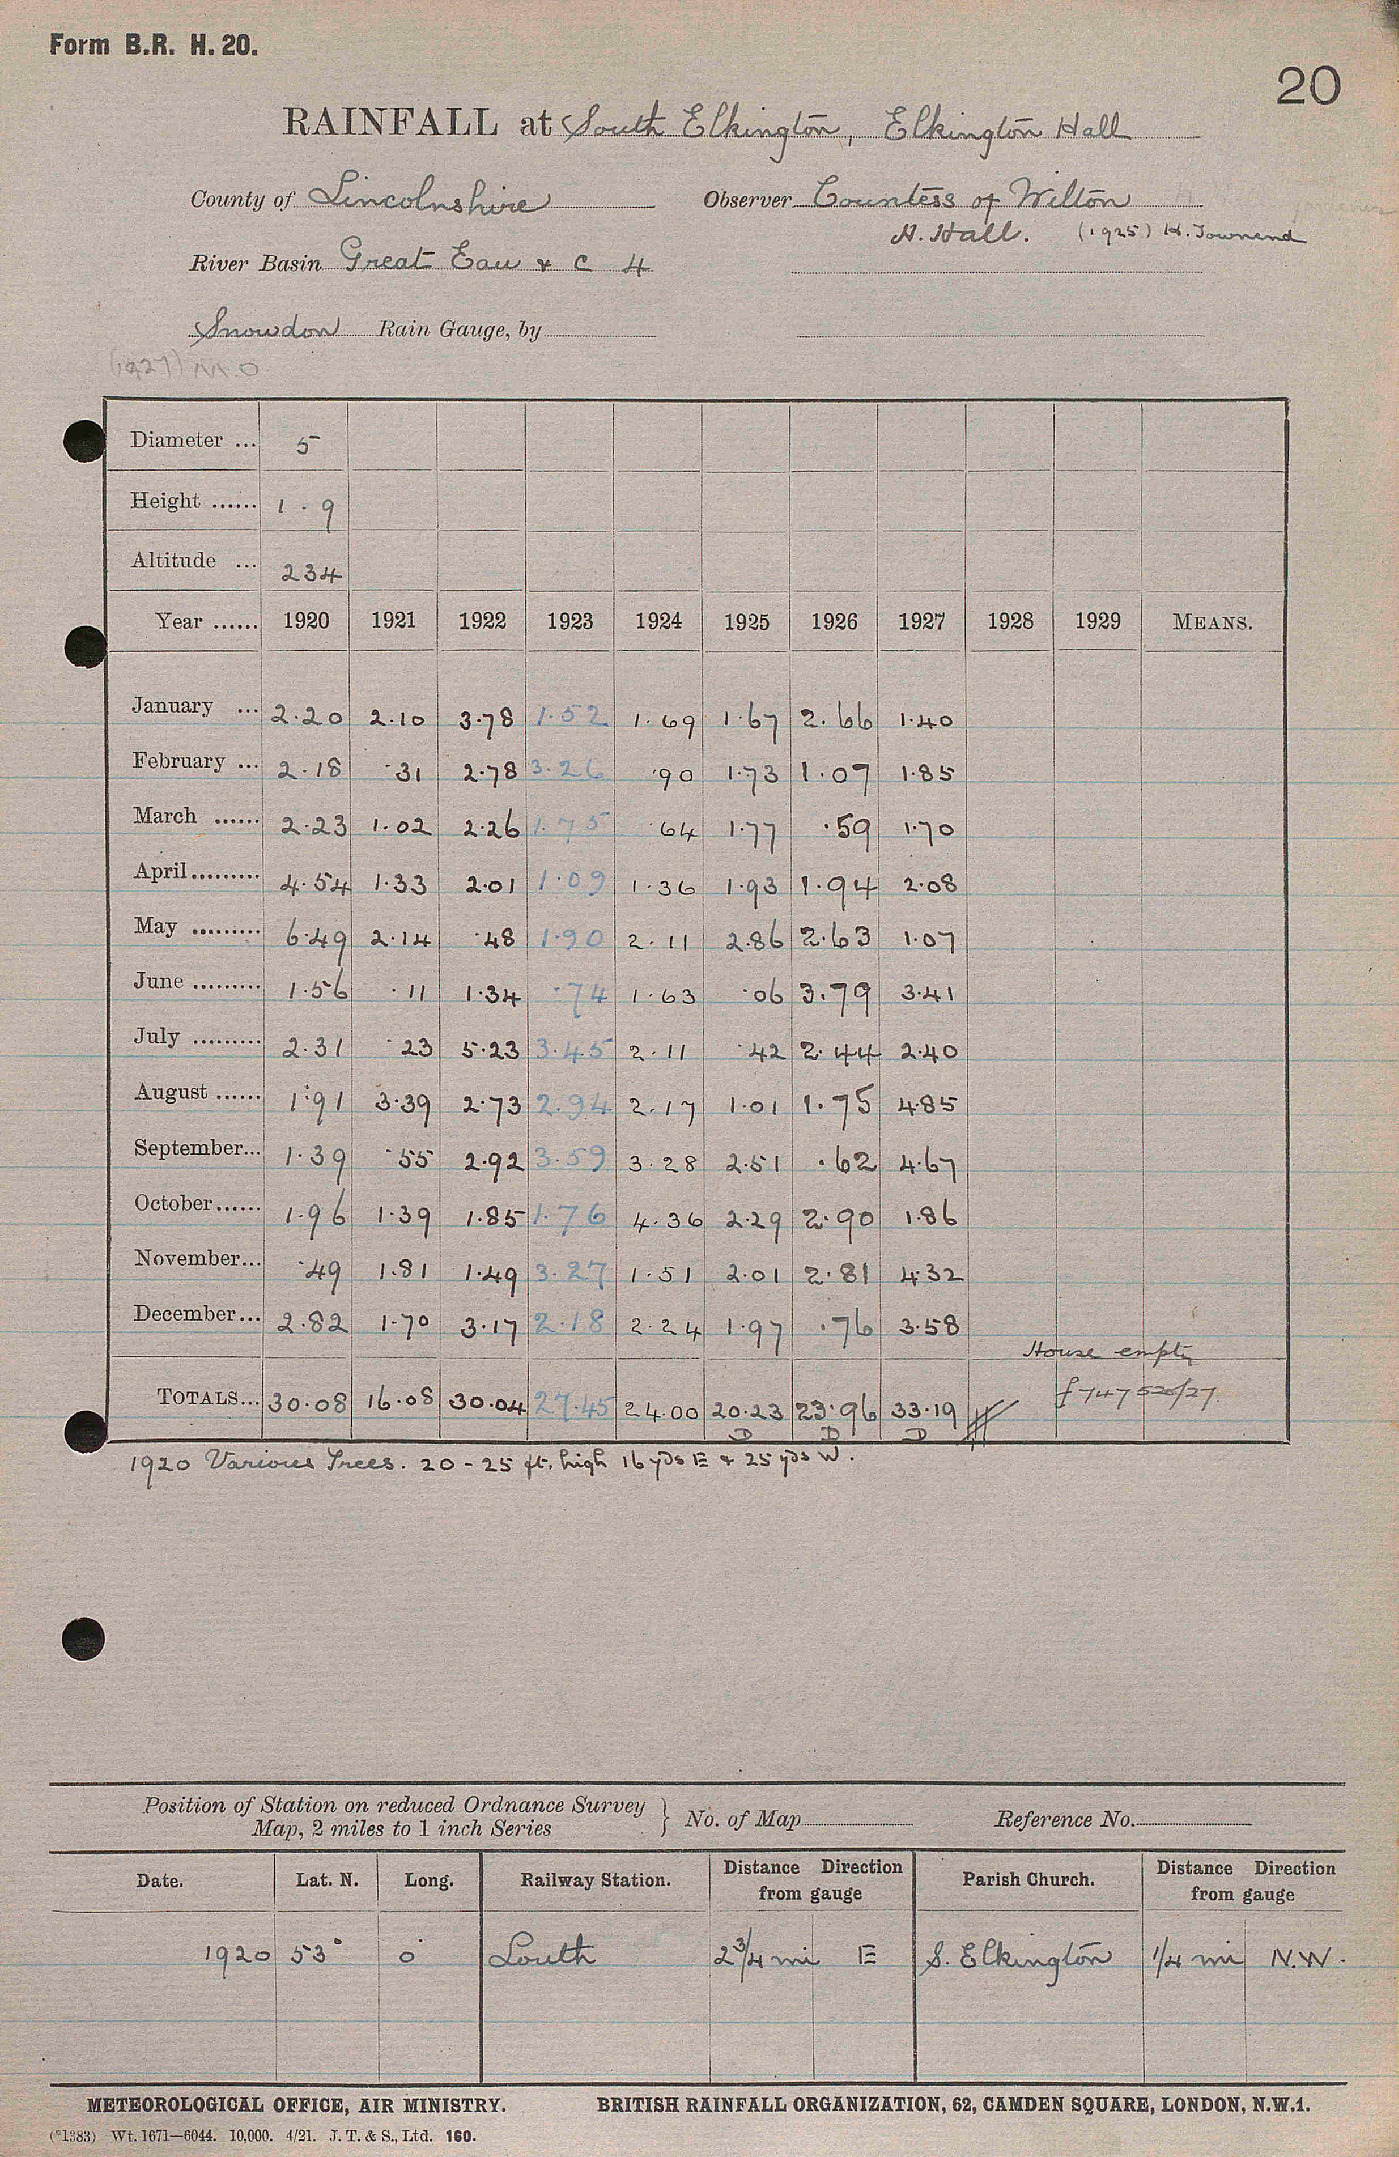 Form B.R. H. 20.
20
RAINFALL at South Elkington, Elkington Hall
County of Lincolnshire Observer Countess of Wilton
H. Hall. (1925) H. Townend
River Basin Great Eau & C 4
Snowdon Rain Gauge, by
(1927) M.O
Diameter ... 5
Height ...... 1.9
Altitude ... 234
Year ...... 1920 1921 1922 1923 1924 1925 1926 1927 1928 1929 MEANS.
January ... 2.20 2.10 3.78 1.52 1.69 1.67 2.66 1.40
February ... 2.18 .31 2.78 3.26 .90 1.73 1.07 1.85
March ...... 2.23 1.02 2.26 1.75 .64 1.77 .59 1.70
April ......... 4.54 1.33 2.01 1.09 1.36 1.93 1.94 2.08
May ......... 6.49 2.14 .48 1.90 2.11 2.86 2.63 1.07
June ......... 1.56 .11 1.34 .74 1.63 .06 3.79 3.41
July ......... 2.31 .23 5.23 3.45 2.11 .42 2.44 2.40
August ...... 1.91 3.39 2.73 2.94 2.17 1.01 1.75 4.85
September... 1.39 .55 2.92 3.59 3.28 2.51 .62 4.67
October ...... 1.96 1.39 1.85 1.76 4.36 2.29 2.90 1.86
November... .49 1.81 1.49 3.27 1.51 2.01 2.81 4.32
December... 2.82 1.70 3.17 2.18 2.24 1.97 .76 3.58
House empty
TOTALS... 30.08 16.08 30.04 27.45 24.00 20.23 23.96 33.19
f 747520/27
D D D
1920 Various Trees. 20 - 25 ft. high 16 yds E & 25 yds W.
Position of Station on reduced Ordnance Survey
Map, 2 miles to 1 inch Series } No. of Map Reference No.
Date. Lat. N. Long. Railway Station. Distance Direction from gauge Parish Church. Distance Direction from gauge
1920 53° 0° Louth 2 3/4 mi E S. Elkington 1/4 mi N.W.
METEOROLOGICAL OFFICE, AIR MINISTRY. BRITISH RAINFALL ORGANIZATION, 62, CAMDEN SQUARE, LONDON, N.W.1.
(*1383) Wt. 1671—6044. 10,000. 4/21. J. T. & S., Ltd. 160.